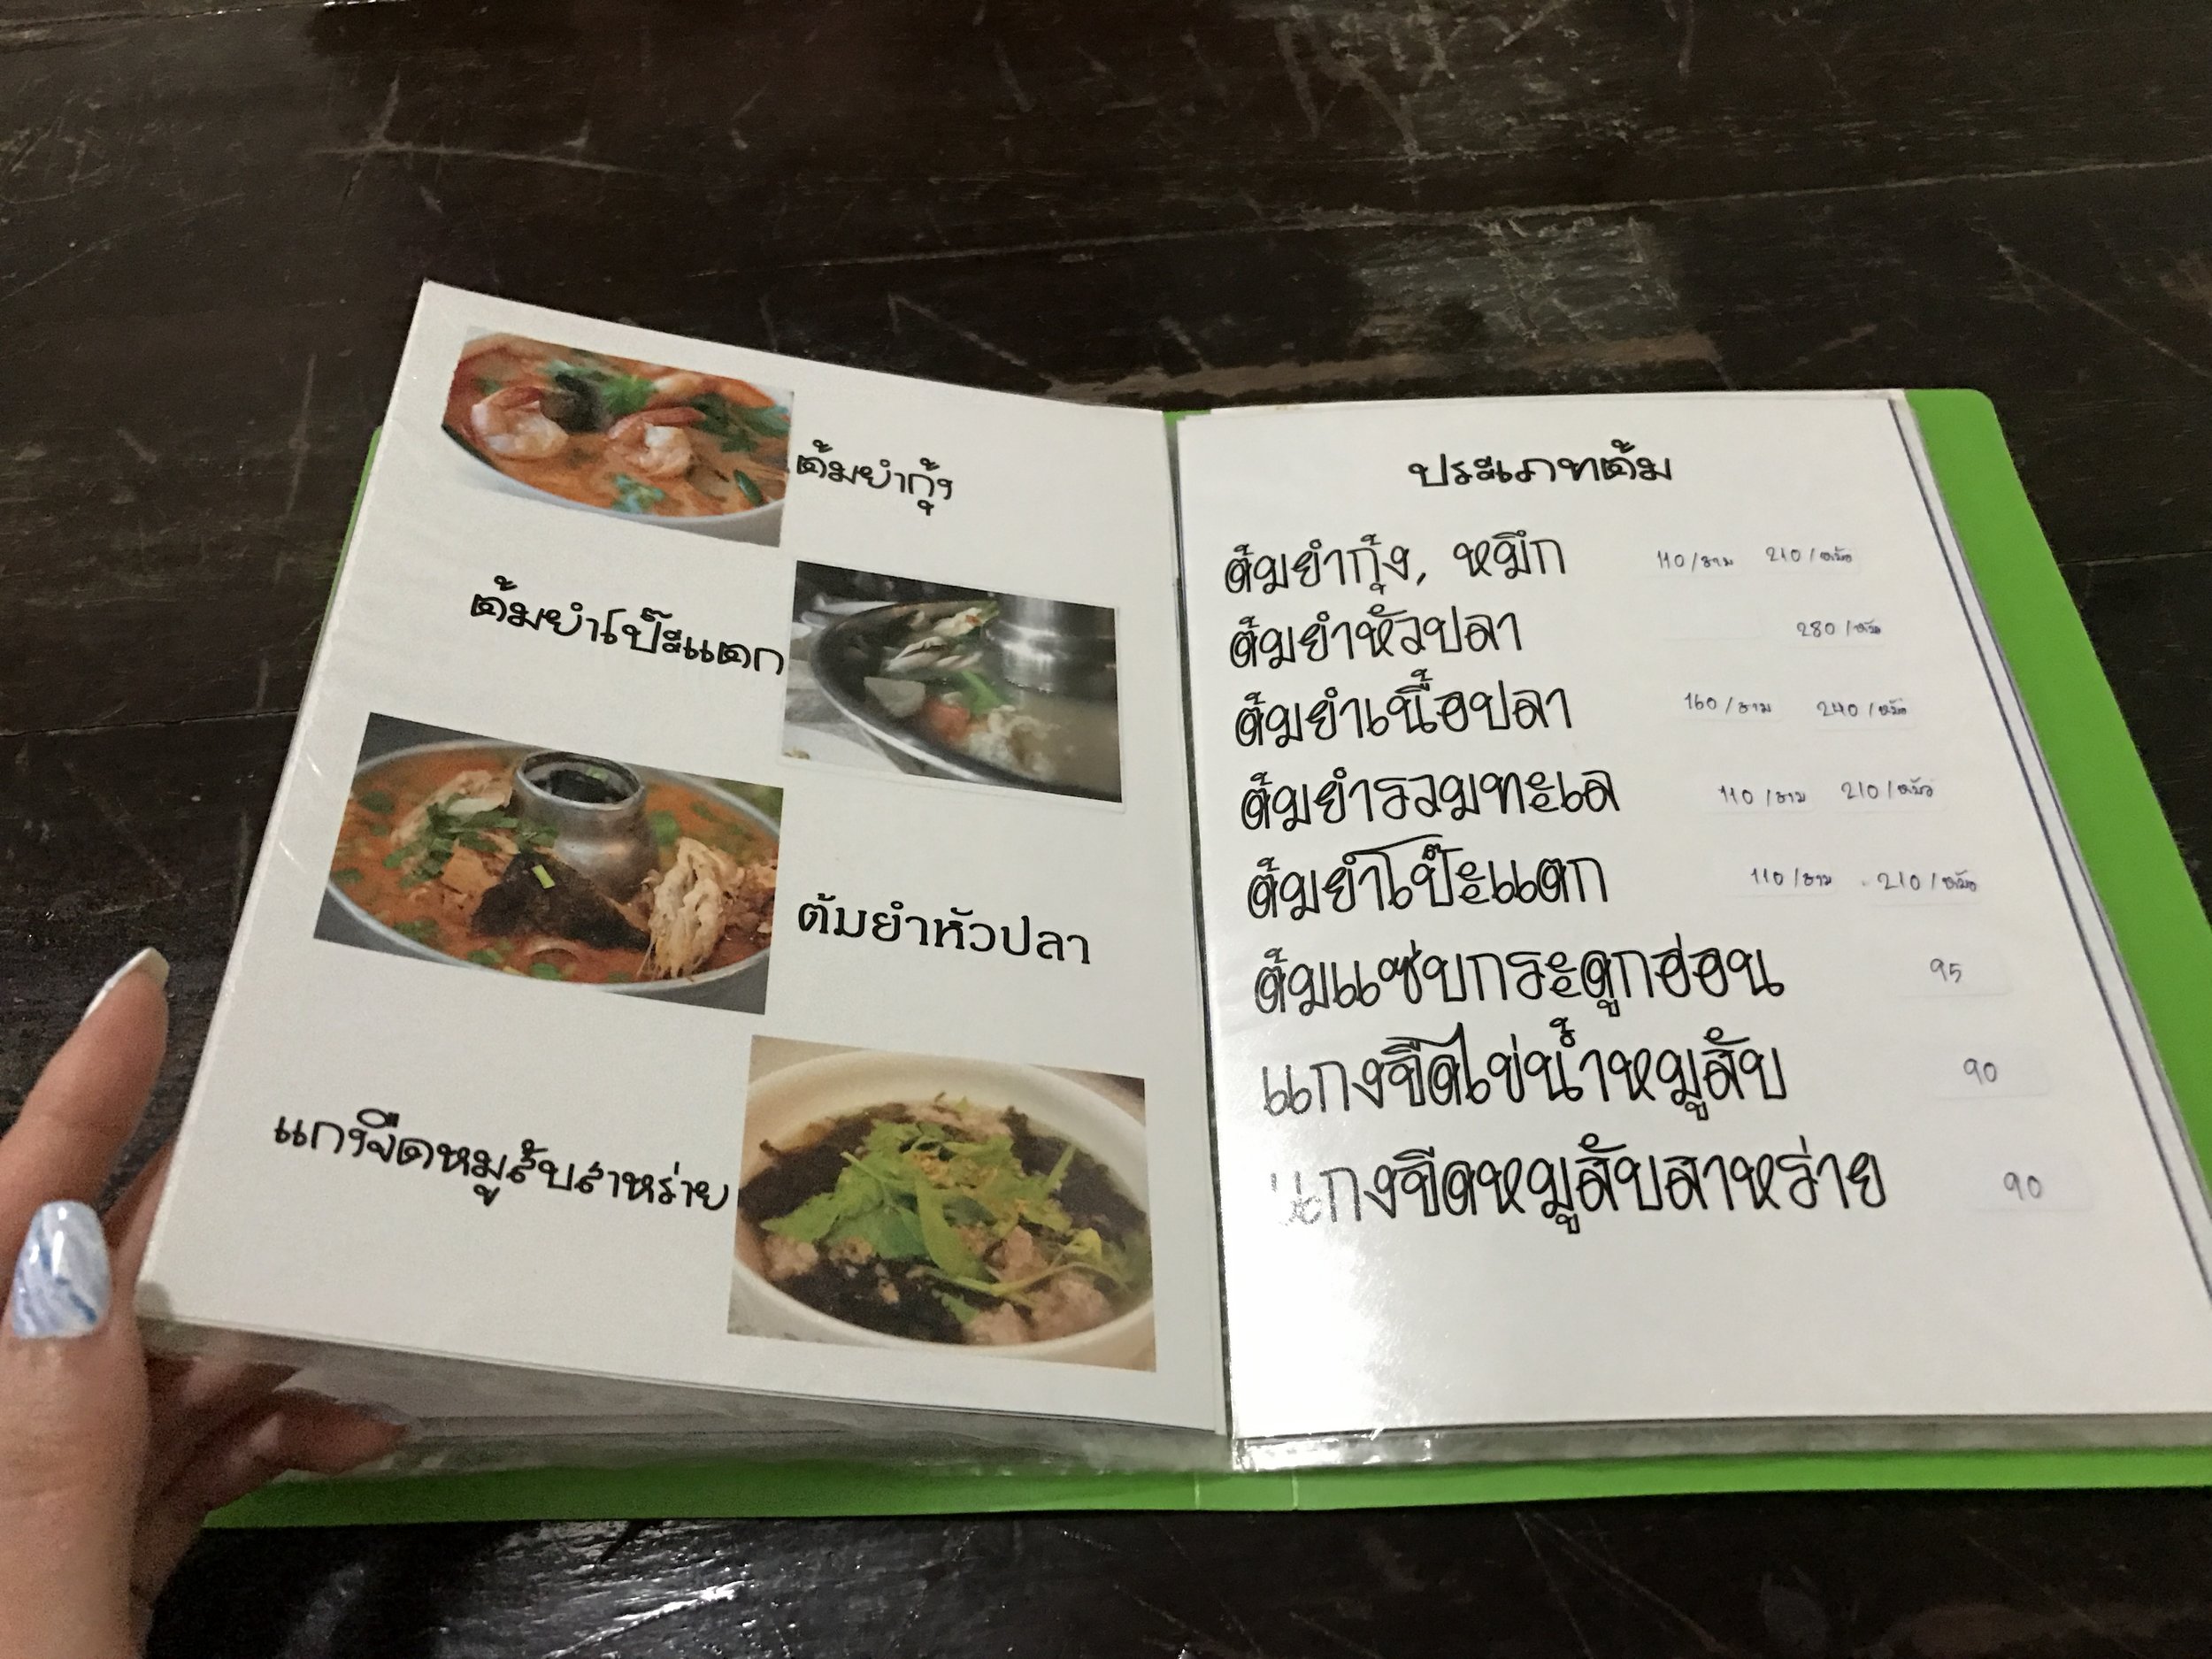 ต้มยำกุ้ง
ต้มยำโป๊ะแตก
ต้มยำหัวปลา
แกงจืดหมูสับสาหร่าย
ประเภทต้ม
ต้มยำกุ้ง, หมึก 110/ชาม 210/หม้อ
ต้มยำหัวปลา 280/หม้อ
ต้มยำเนื้อปลา 160/ชาม 240/หม้อ
ต้มยำรวมทะเล 110/ชาม 210/หม้อ
ต้มยำโป๊ะแตก 110/ชาม 210/หม้อ
ต้มแซ่บกระดูกอ่อน 95
แกงจืดไข่น้ำหมูสับ 90
แกงจืดหมูสับสาหร่าย 90